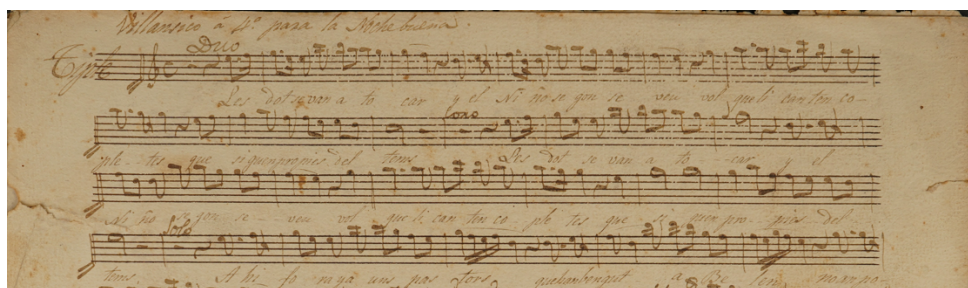 Villansico à 4º para la Nochebuena.
Tiple
Duo
Les dotse van a to car y el Niño se gon se veu vol que li canten co-
Cono
ple - tes que siguen propies del tems Les dot se van a to - car y el
Ni ño se gon se - veu vol que li can ten co - ple tes que - si guen pro - pies del
Solo
tems. A hi fo ra ya uns pas tors que han bengut a Be len